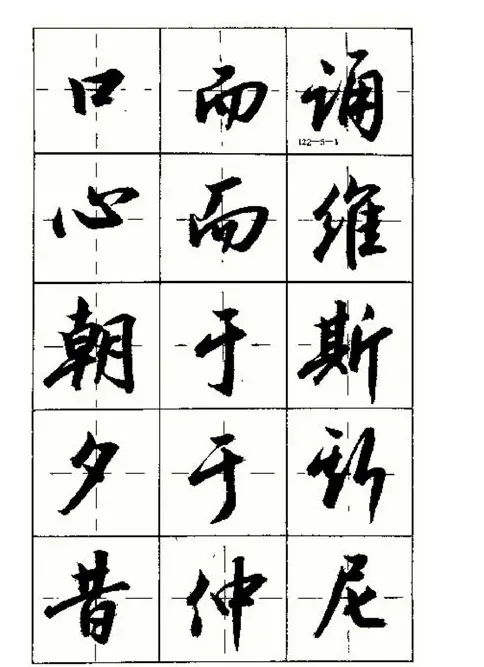 口而诵
122-5-1
心而维
朝于斯
夕于斯
昔仲尼